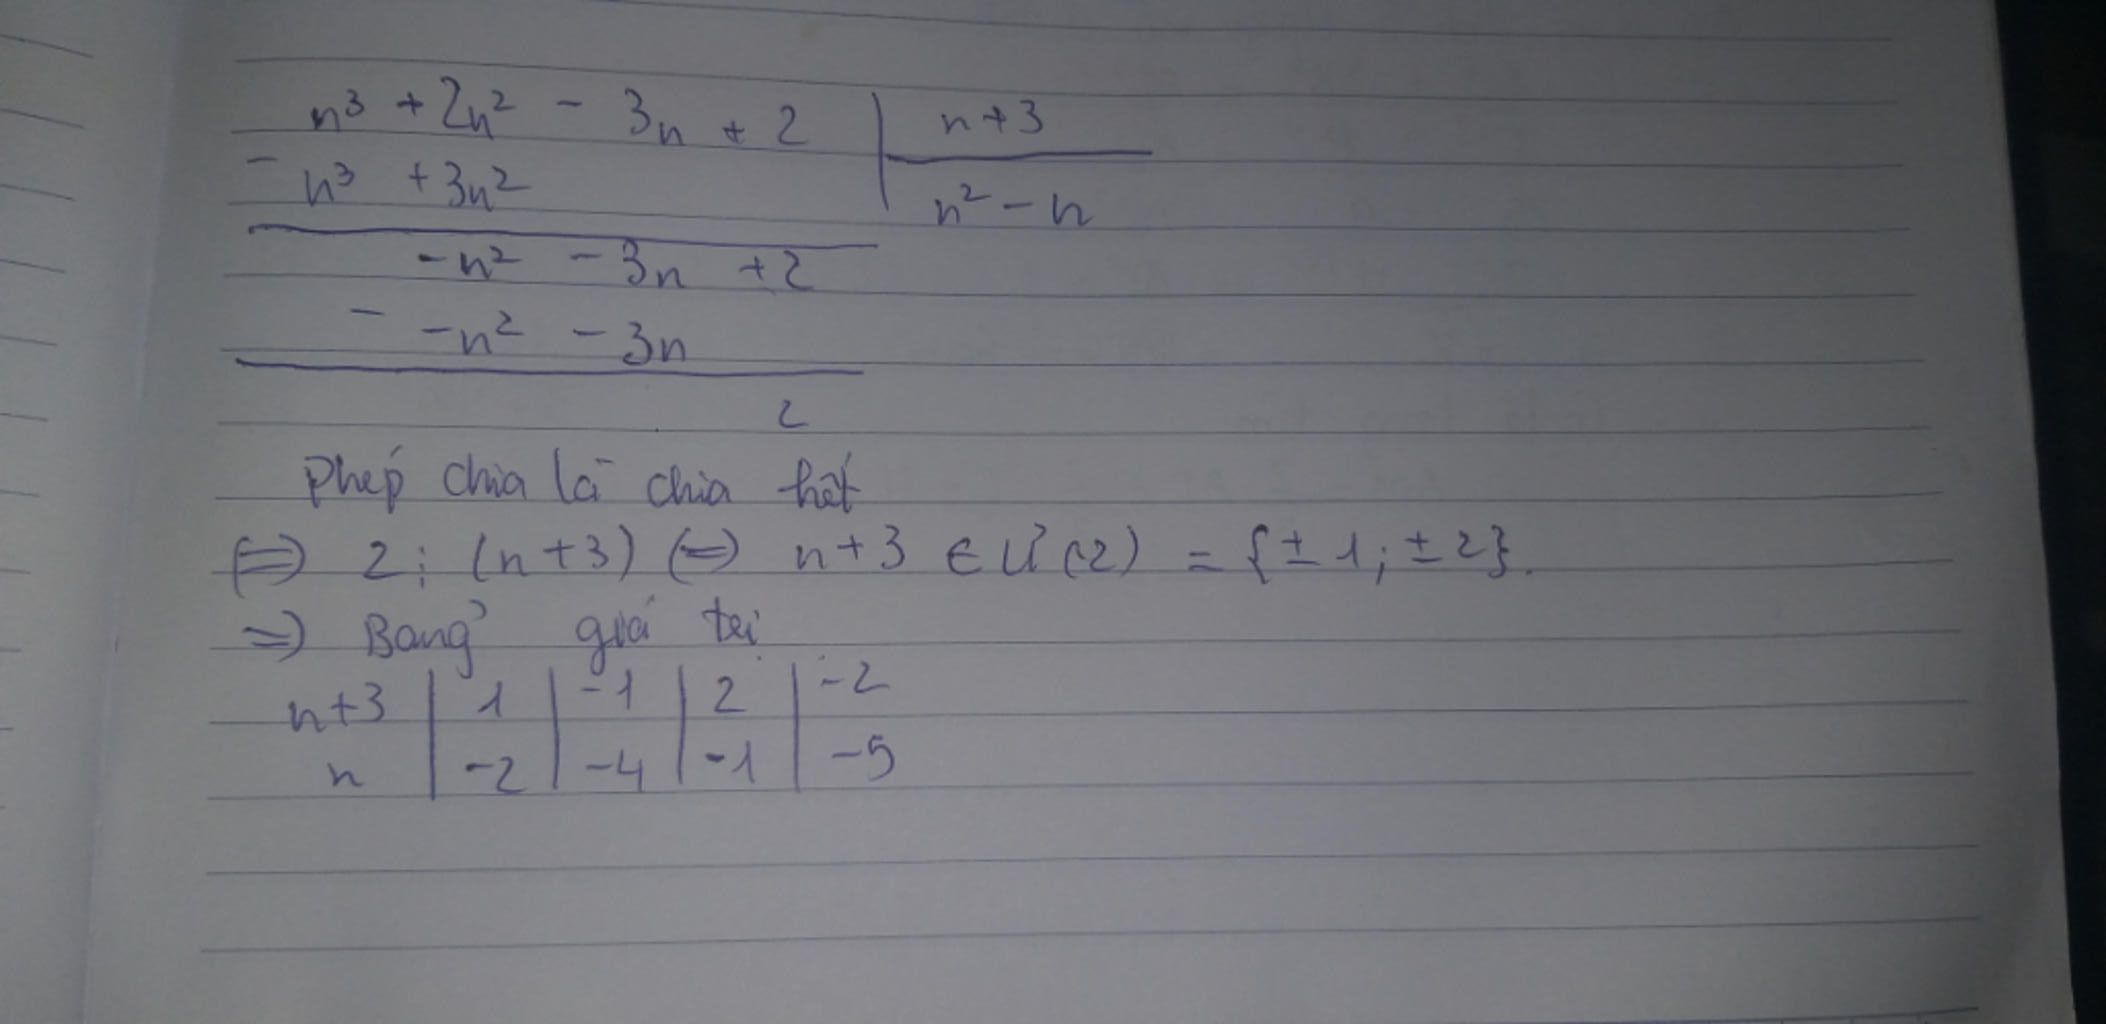 n³ + 2n² - 3n + 2 | n+3
- n³ + 3n² | n² - n
-n² - 3n + 2
- -n² - 3n
2
Phép chia là chia hết
⇔ 2 ⋮ (n+3) ⇔ n+3 ∈ Ư(2) = {± 1; ± 2}.
⇒ Bảng giá trị
n+3 | 1 | -1 | 2 | -2
n | -2 | -4 | -1 | -5